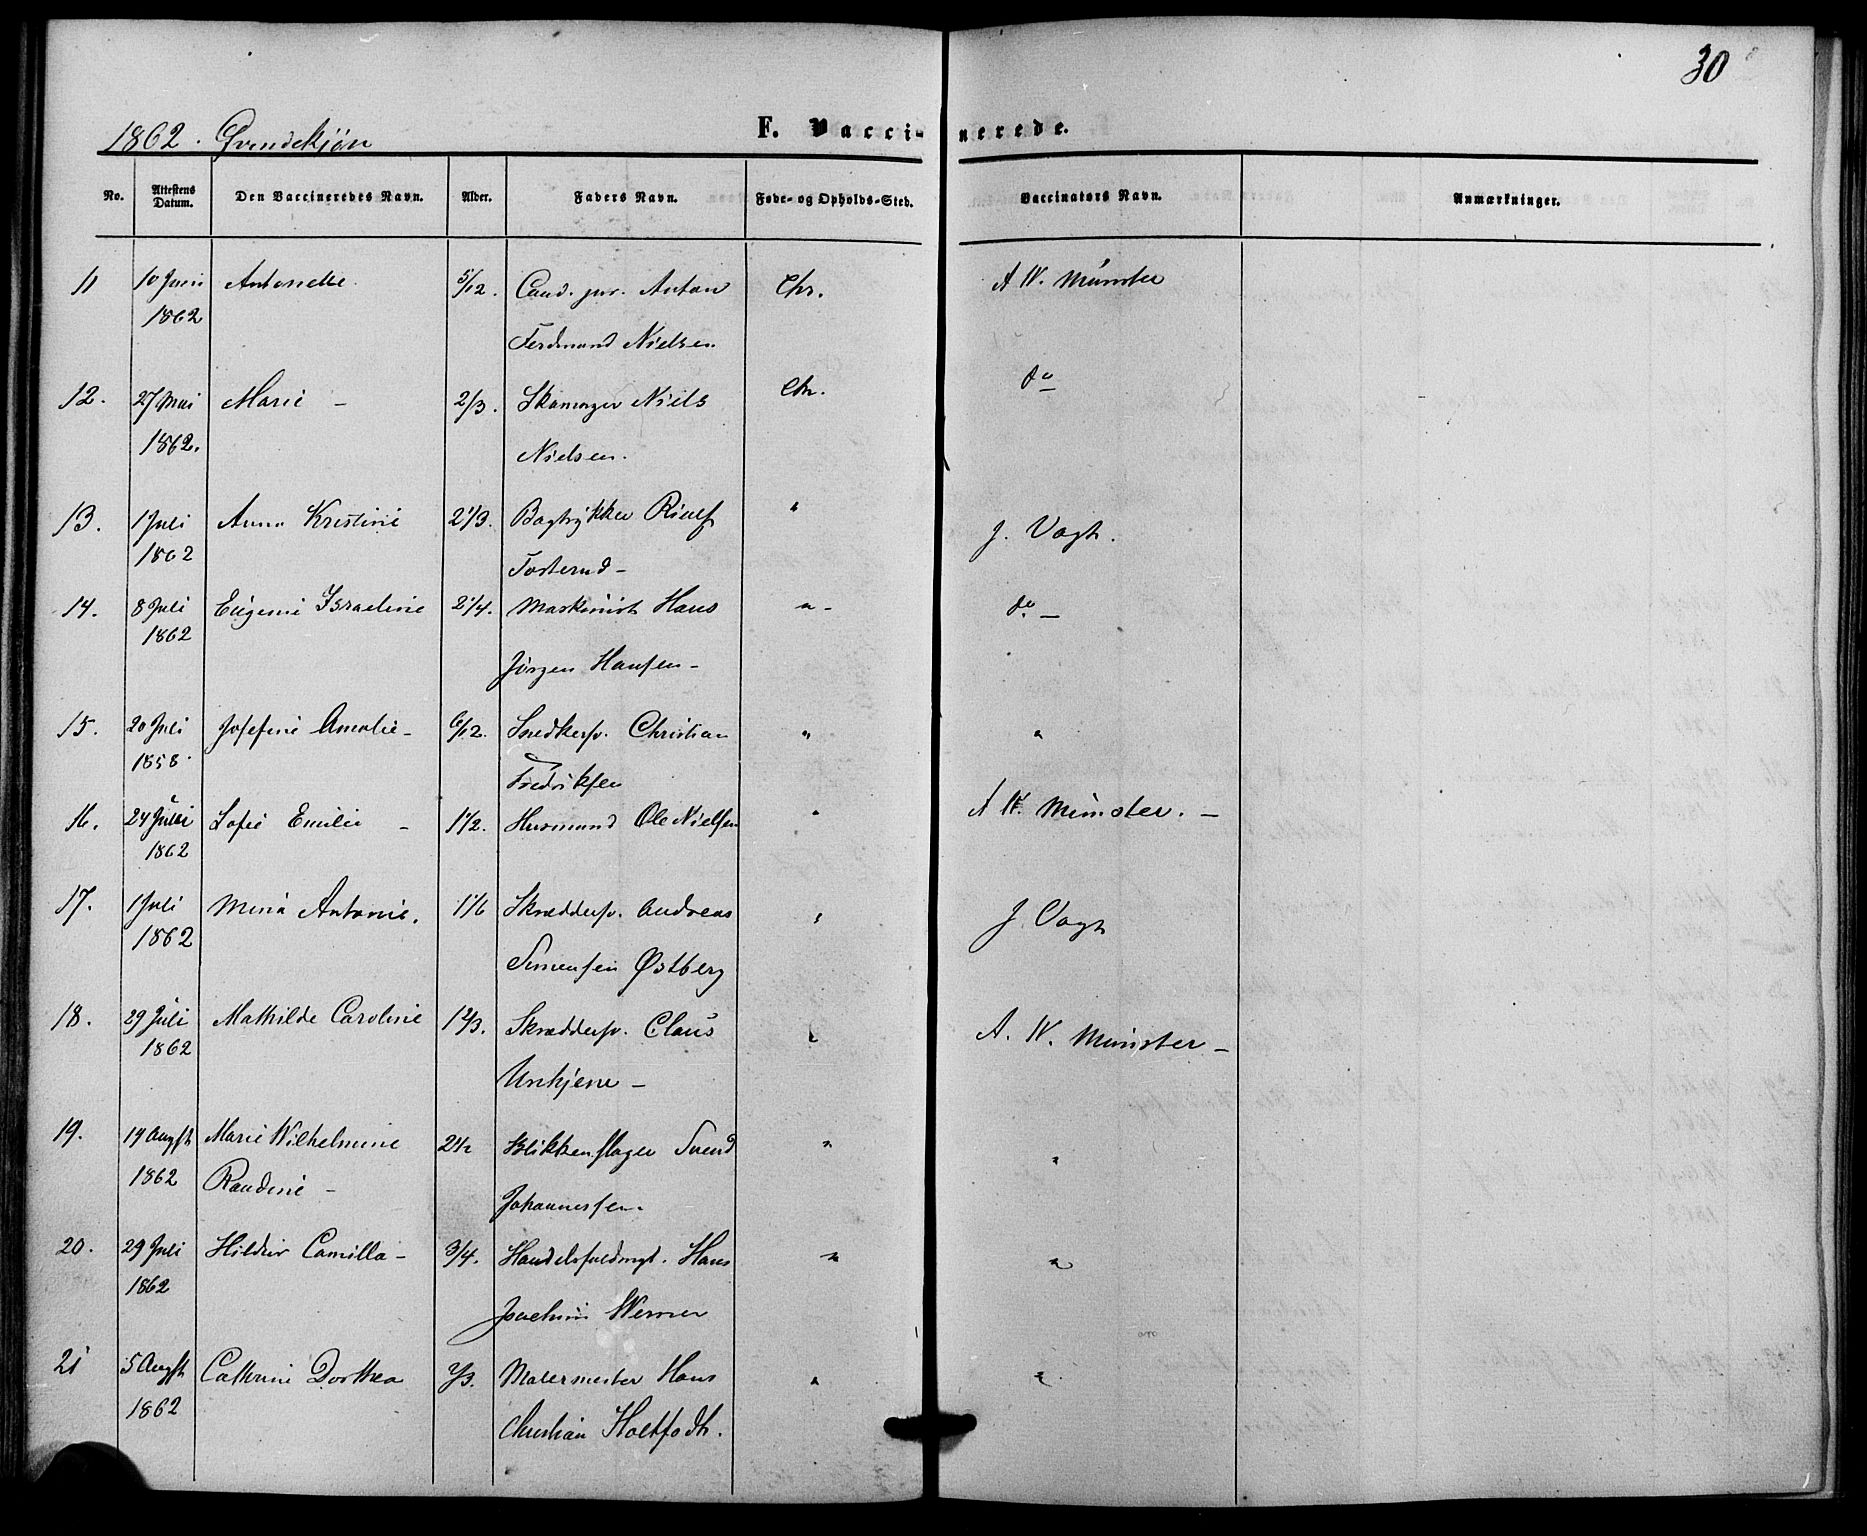 30
1862. Qvindekjøn
F. Vaccinerede.
No. Attestens Datum. Den Vaccineredes Navn. Alder. Faders Navn. Føde- og Opholds-Sted. Vaccinators Navn. Anmærkninger.
11 10 Juni Antonette. 5/12. Cand. jur. Anton Chr. A W. Münster
1862 Ferdinand Nielsen
12. 27 Mai Marie – 2/3. Niels Chr. do
1862. Nielsen.
13. 1 Juli Anna Kristine 2 1/3. Bogtrykker " J. Vogt.
1862 Tosterud –
14. 8 Juli Eugenie Israeline 2 1/4. Maskinist Hans " – do –
1862 Jörgen Hansen –
15. 20 Juli Josefine Amalie – 6/12. Snedkersv. Christian " "
1858. Fredriksen
16. 24 Juli Sofie Emilie – 1 1/2. Husmand Ole Nielsen " A W. Münster. –
1862
17. 1 Juli Mina Antonie. 1 1/6 Skræddersv. Andreas " J Vogt
1862 Simensen Østberg
18. 29 Juli Mathilde Caroline 1 2/3. Skræddersv. Claus " A. W. Münster –
1862
19. 19 Augst Marie Wilhelmine 2 1/2 Blikkenslager Svend " "
1862 Randine – Johannessen.
20. 29 Juli Camilla – 3/4. Handelsfuldmgt. Hans " "
1862 Joachim Werner
21 5 Augst Cathrine Dorthea 2/3. Malermester Hans " "
1862 Christian Holtfodt.